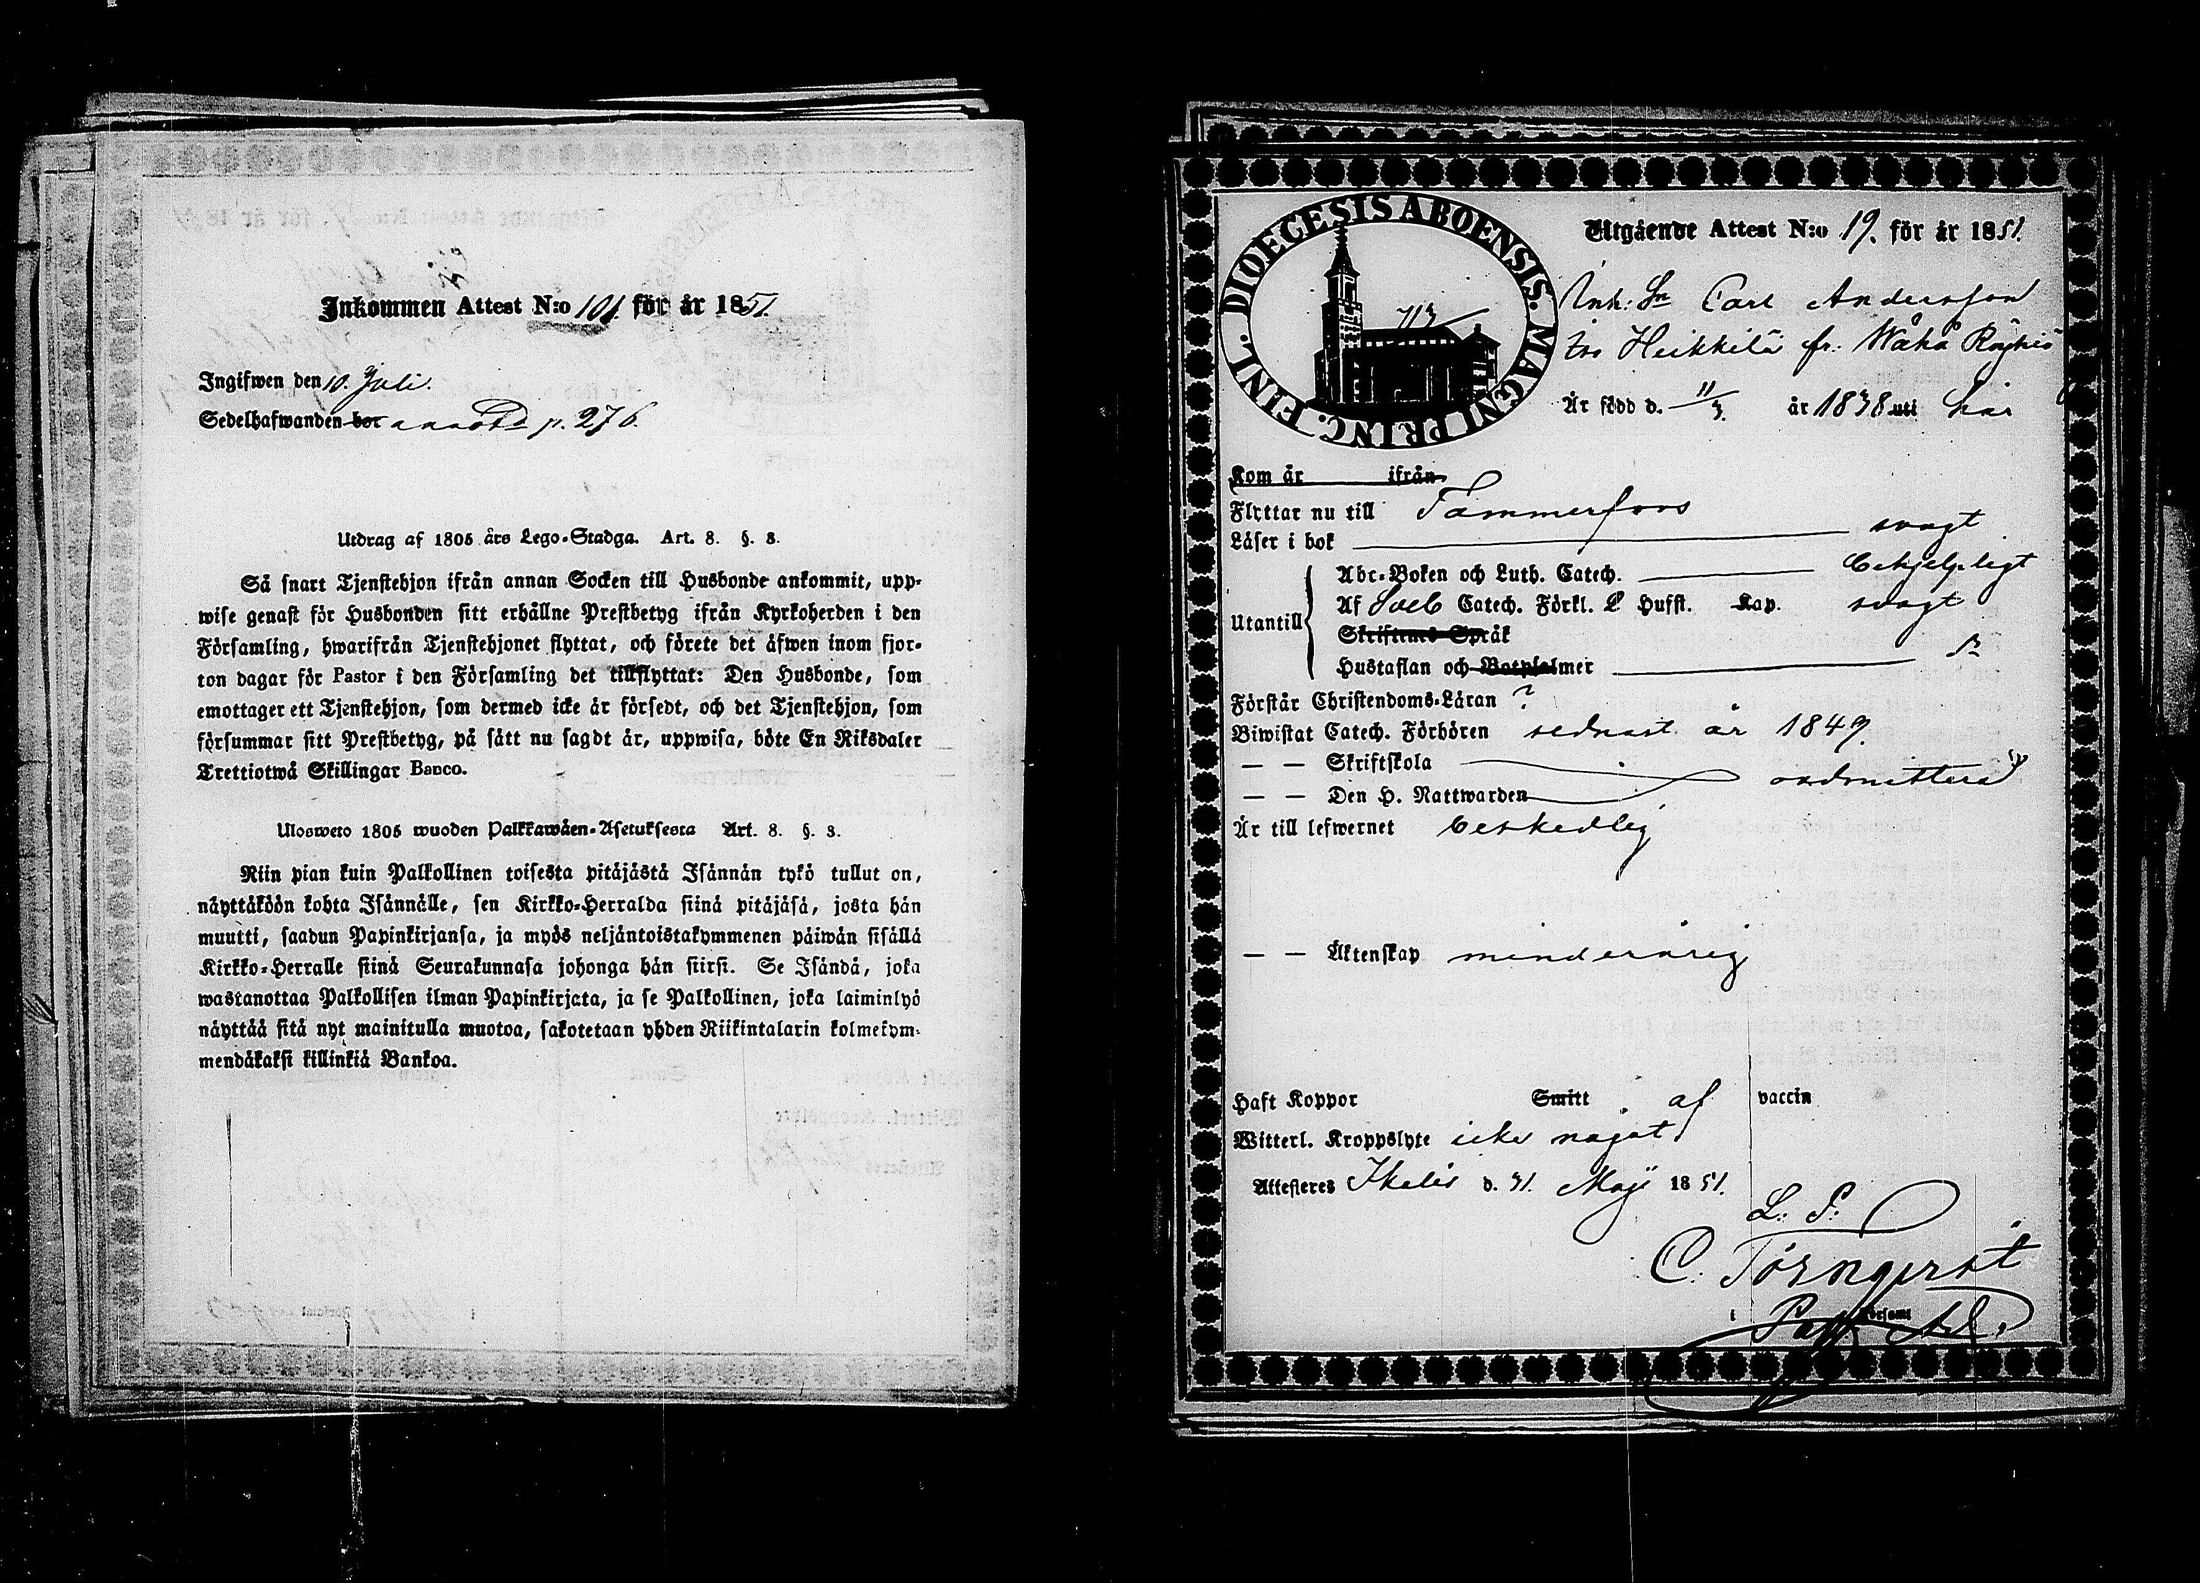 Inkommen Attest N:o 101 för år 1851.
Ingifwen den 10. Juli.
Sedelhafwanden bor p. 276.
Utdrag af 1805 års Lego-Stadga. Art. 8. §. 3.
Så snart Tjenstehjon ifrån annan Socken till Husbonde ankommit, upp-
wise genast för Husbonden sitt erhållne Prestbetyg ifrån Kyrkoherden i den
Församling, hwarifrån Tjenstehjonet flyttat, och förete det äfwen inom fjor-
ton dagar för Pastor i den Församling det tillflyttat: Den Husbonde, som
emottager ett Tjenstehjon, som dermed icke är försedt, och det Tjenstehjon, som
försummar sitt Prestbetyg, på sätt nu sagdt är, uppwisa, böte En Riksdaler
Trettiotwå Skillingar Banco.
Ulosweto 1805 wuoden Palkkawäen-Asetuksesta Art. 8. §. 3.
Niin pian kuin Palkollinen toisesta pitäjästä Isännän tykö tullut on,
näyttäköön kohta Isännälle, sen Kirkko-Herralda siinä pitäjäsä, josta hän
muutti, saadun Papinkirjansa, ja myös neljäntoistakymmenen päiwän sisällä
Kirkko-Herralle siinä Seurakunnasa johonga hän siirsi. Se Isändä, joka
wastanottaa Palkollisen ilman Papinkirjata, ja se Palkollinen, joka laiminlyö
näyttää sitä nyt mainitulla muotoa, sakotetaan yhden Riikintalarin kolmekym-
mendäkaksi killinkiä Bankoa.
DIOECESIS ABOENSIS. MAGNI PRINC. FINL.
713
Utgående Attest N:o 19. för år 1851.
Inh: Sn Carl Andersson
Heikkilä fr. Wåhå Röykiö
Är född d. 11/3. år 1838 uti här
Kom år ifrån
Flyttar nu till Tammerfors
Läser i bok svagt
Utantill
Abc-Boken och Luth. Catech. behjelpligt
Af Sveb Catech. Förkl. Hufst. Kap. svagt
Skriftenes Språk
Hustaflan och Botpsalmer
Förstår Christendoms-Läran ?
Biwistat Catech. Förhören sednast år 1849.
— — Skriftskola
— — Den H. Nattwarden oadmitterad
Är till lefwernet beskedlig
— — Äktenskap minderårig
Haft Koppor Smitt af vaccin
Witterl. Kroppslyte icke något
Attesteres Ikalis d. 31. Maji 1851.
L. S.
C. Törnqvist
i Församl